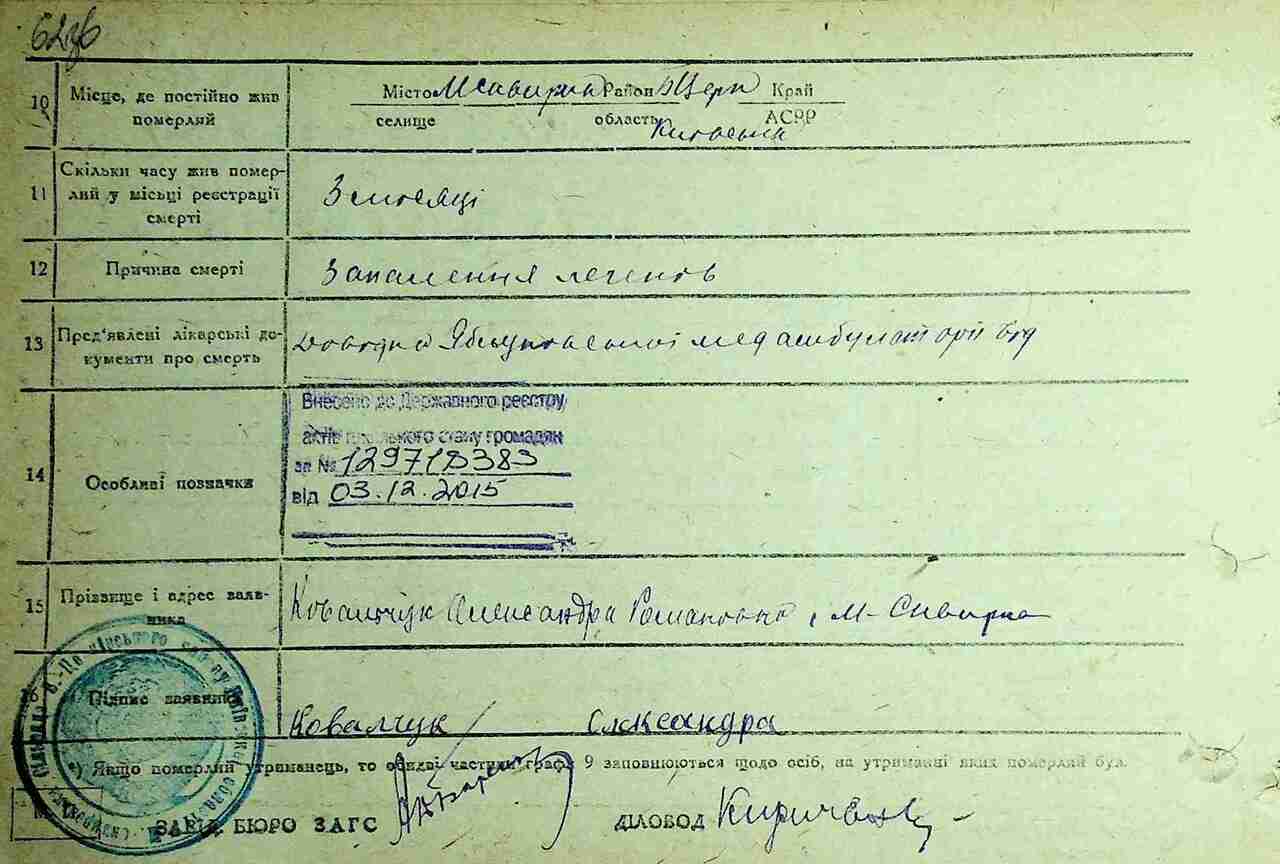 10 Місце, де постійно жив Місто М Сивирка Район БЦерк Край
померлий селище область Київська АСРР
Скільки часу жив помер-
11 лий у місці реєстрації 3 місяці
смерті
12 Причина смерті Запалення легенів
13 Пред'явлені лікарські до- Довідка Яблуновської мед амбулаторії від
кументи про смерть
Внесено до Державного реєстру
актів цивільного стану громадян
за №
14 Особливі позначки
від 03.12.2015
15 Прізвище і адрес заяв- Ковальчук Александра Романовна, М-Сивирка
ника
16 Підпис заявника Ковалчук Олександра
*) Якщо померлий утриманець, то обидві частини графи 9 заповнюються щодо осіб, на утриманні яких померлий був.
ЗАВІД. БЮРО ЗАГС ДІЛОВОД